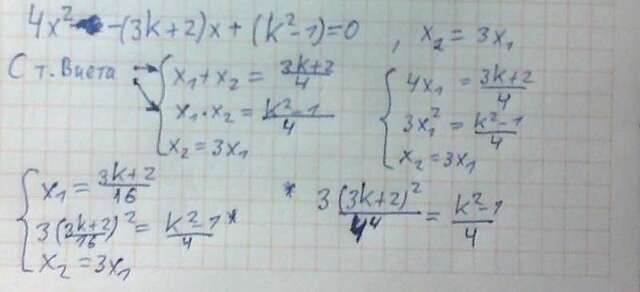 4x² -(3k+2)x + (k²-1)=0 , x₂ = 3x₁
С т. Виета
x₁+x₂ = (3k+2)/4
x₁·x₂ = (k²-1)/4
x₂ = 3x₁
4x₁ = (3k+2)/4
3x₁² = (k²-1)/4
x₂ = 3x₁
x₁ = (3k+2)/16
3((3k+2)/16)² = (k²-1)/4 *
x₂ = 3x₁
* 3(3k+2)²/4⁴ = (k²-1)/4